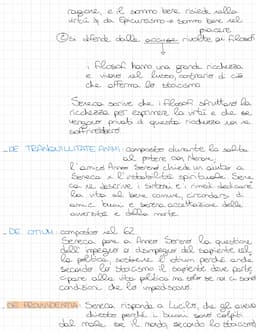 ragione, e il sommo bene risiede nella
virtù e da Epicureismo → sommo bene nel
piacere
② si difende dalle accuse rivolte ai filosofi
i filosofi hanno una grande ricchezza
e vivono nel lusso, contrario di ciò
che afferma lo stoicismo
Seneca scrive che i filosofi sfruttano la
ricchezza per esprimere la virtù e che se
vengono privati di questa ricchezza non ne
soffrirebbero
_DE TRANQUILLITATE ANIMI: composto durante la salita
al potere con Nerone,
l'amico Anneo Sereno chiede un aiuto a
Seneca x l'instabilità spirituale. Sene
ca ne descrive i sintomi e i rimedi: dedicare
la vita al bene comune, circondarsi di
amici buoni e serena accettazione delle
avversità e della morte.
_DE OTIUM: composto nel 62
Seneca pone a Anneo Sereno la questione
dell'impegno o disimpegno del sapiente nel
la politica, sostiene l'otium perché anche
secondo lo stoicismo il sapiente deve parte
cipare alla vita politica ma solo se non ci sono
condizioni che lo impediscano.
_DE PROVIDENTIA: Seneca risponde a Lucilio, che gli aveva
chiesto perché i buoni sono colpiti
dal male se il mondo, secondo lo stoicismo,